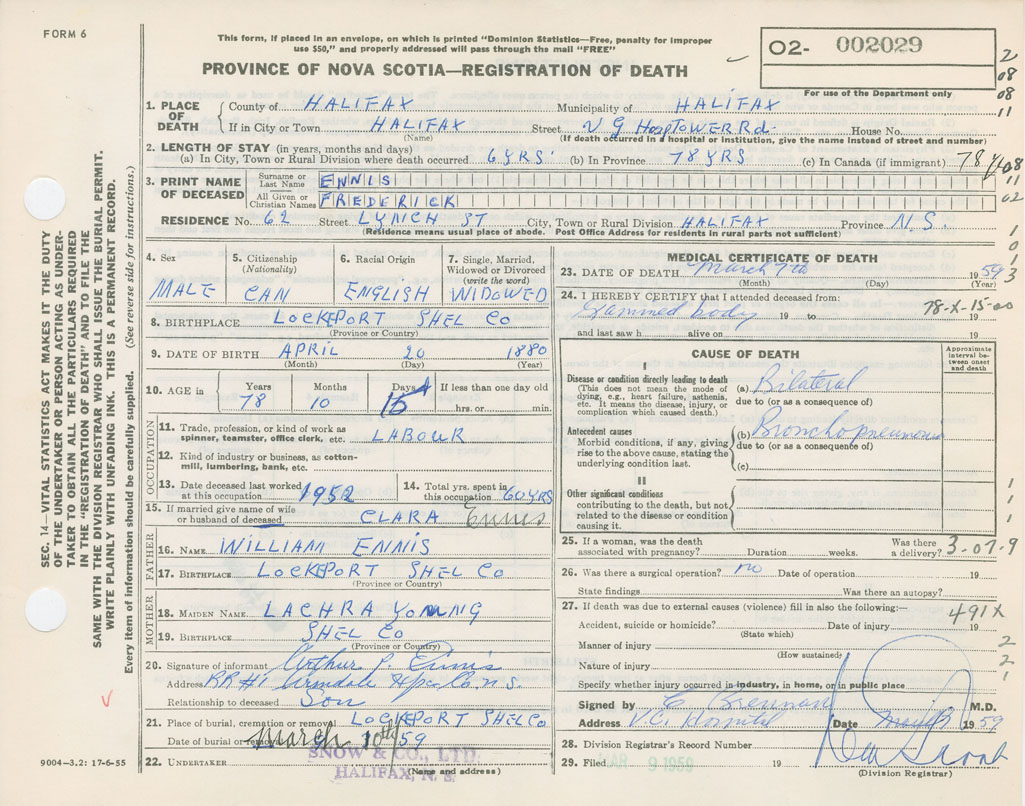 FORM 6
This form, if placed in an envelope, on which is printed "Dominion Statistics—Free, penalty for improper
use $50," and properly addressed will pass through the mail "FREE"
O2- 002029
For use of the Department only
PROVINCE OF NOVA SCOTIA—REGISTRATION OF DEATH
2
08
08
11
1. PLACE OF DEATH { County of HALIFAX Municipality of HALIFAX
If in City or Town HALIFAX Street V G Hosp TOWER Rd. House No.
(Name) (If death occurred in a hospital or institution, give the name instead of street and number)
2. LENGTH OF STAY (in years, months and days)
(a) In City, Town or Rural Division where death occurred 6 YRS (b) In Province 78 YRS (c) In Canada (if immigrant) 78
08
11
02
3. PRINT NAME OF DECEASED { Surname or Last Name ENNIS
All Given or Christian Names FREDERICK
RESIDENCE No. 62 Street LYNCH ST City, Town or Rural Division HALIFAX Province N.S.
(Residence means usual place of abode. Post Office Address for residents in rural parts not sufficient)
1
0
1
3
4. Sex
MALE
5. Citizenship
(Nationality)
CAN
6. Racial Origin
ENGLISH
7. Single, Married,
Widowed or Divorced
(write the word)
WIDOWED
8. BIRTHPLACE LOCKEPORT SHEL CO
(Province or Country)
9. DATE OF BIRTH APRIL 20 1880
(Month) (Day) (Year)
10. AGE in Years 78 Months 10 Days 15 If less than one day old
hrs. or min.
OCCUPATION
11. Trade, profession, or kind of work as
spinner, teamster, office clerk, etc. LABOUR
12. Kind of industry or business, as cotton-
mill, lumbering, bank, etc.
13. Date deceased last worked
at this occupation 1952
14. Total yrs. spent in
this occupation 60 YRS
15. If married give name of wife
or husband of deceased CLARA Ennis
FATHER
16. NAME WILLIAM ENNIS
17. BIRTHPLACE LOCKEPORT SHEL CO
(Province or Country)
MOTHER
18. MAIDEN NAME LACHRA YOUNG
19. BIRTHPLACE SHEL CO
(Province or Country)
20. Signature of informant Arthur P. Ennis
Address RR#1 Armdale Hfx Co. N.S.
Relationship to deceased Son
21. Place of burial, cremation or removal LOCKEPORT SHEL CO
Date of burial or removal March 10th 59
22. UNDERTAKER SNOW & CO., LTD.
HALIFAX, N. S.
(Name and address)
MEDICAL CERTIFICATE OF DEATH
23. DATE OF DEATH March 7th 1959
(Month) (Day) (Year)
24. I HEREBY CERTIFY that I attended deceased from:
Examined body 19 to 19
78-X-15-00
and last saw h alive on 19
CAUSE OF DEATH
Approximate
interval be-
tween onset
and death
I
Disease or condition directly leading to death
(This does not mean the mode of
dying, e.g., heart failure, asthenia,
etc. It means the disease, injury, or
complication which caused death.)
(a) Bilateral
due to (or as a consequence of)
Antecedent causes
Morbid conditions, if any, giving
rise to the above cause, stating the
underlying condition last.
(b) Bronchopneumonia
due to (or as a consequence of)
(c)
II
Other significant conditions
contributing to the death, but not
related to the disease or condition
causing it.
1
1
1
25. If a woman, was the death
associated with pregnancy? Duration weeks. Was there
a delivery? 3-07-9
26. Was there a surgical operation? no Date of operation 19
State findings Was there an autopsy?
27. If death was due to external causes (violence) fill in also the following:—
491X
Accident, suicide or homicide? Date of injury 19
(State which)
Manner of injury 2
(How sustained)
Nature of injury 2
1
Specify whether injury occurred in industry, in home, or in public place
Signed by C Brennan M.D.
Address V.G. Hospital Date 1959
28. Division Registrar's Record Number
29. Filed MAR 9 1959 19
(Division Registrar)
SEC. 14—VITAL STATISTICS ACT MAKES IT THE DUTY
OF THE UNDERTAKER OR PERSON ACTING AS UNDER-
TAKER TO OBTAIN ALL THE PARTICULARS REQUIRED
IN THE "REGISTRATION OF DEATH" AND TO FILE THE
SAME WITH THE DIVISION REGISTRAR WHO SHALL ISSUE THE BURIAL PERMIT.
WRITE PLAINLY WITH UNFADING INK. THIS IS A PERMANENT RECORD.
Every item of information should be carefully supplied. (See reverse side for instructions.)
9004—3.2: 17-6-55